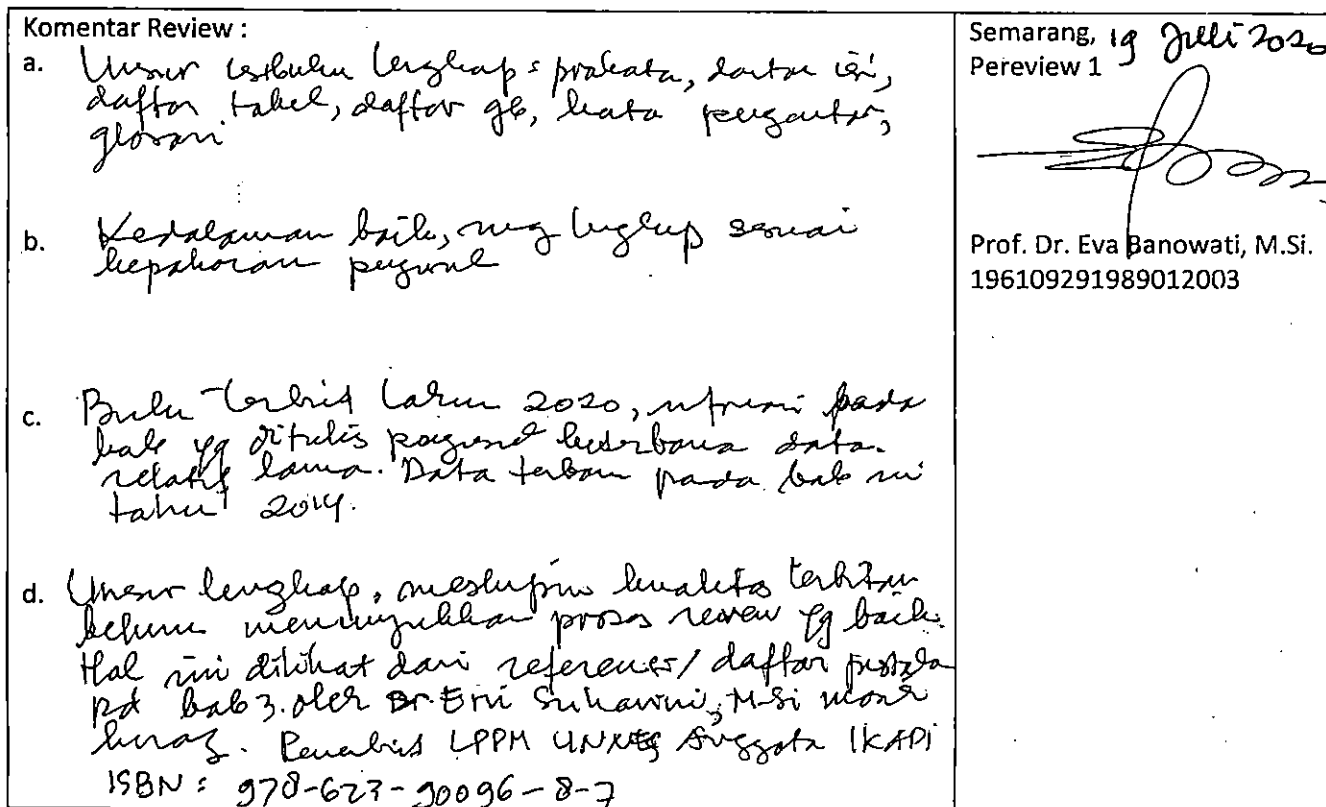 Komentar Review :
a. Unsur isi buku lengkap : prakata, daftar isi,
daftar tabel, daftar gb, kata pengantar,
glosari
b. Kedalaman baik, ruang lingkup sesuai
kepakaran pengusul
c. Buku terbit tahun 2020, referensi pada
bab yg ditulis pengusul berbasis data
relatif lama. Data terbaru pada bab ini
tahun 2014.
d. Unsur lengkap, meskipun kualitas terbitan
belum menunjukkan proses review yg baik.
Hal ini dilihat dari referensi/ daftar pustaka
pd bab 3. oleh Dr. Erni Suharini, M.Si masih
kurang. Penerbit LPPM UNNES Anggota IKAPI
ISBN : 978-623-90096-8-7
Semarang, 19 Juli 2020
Pereview 1
Prof. Dr. Eva Banowati, M.Si.
196109291989012003